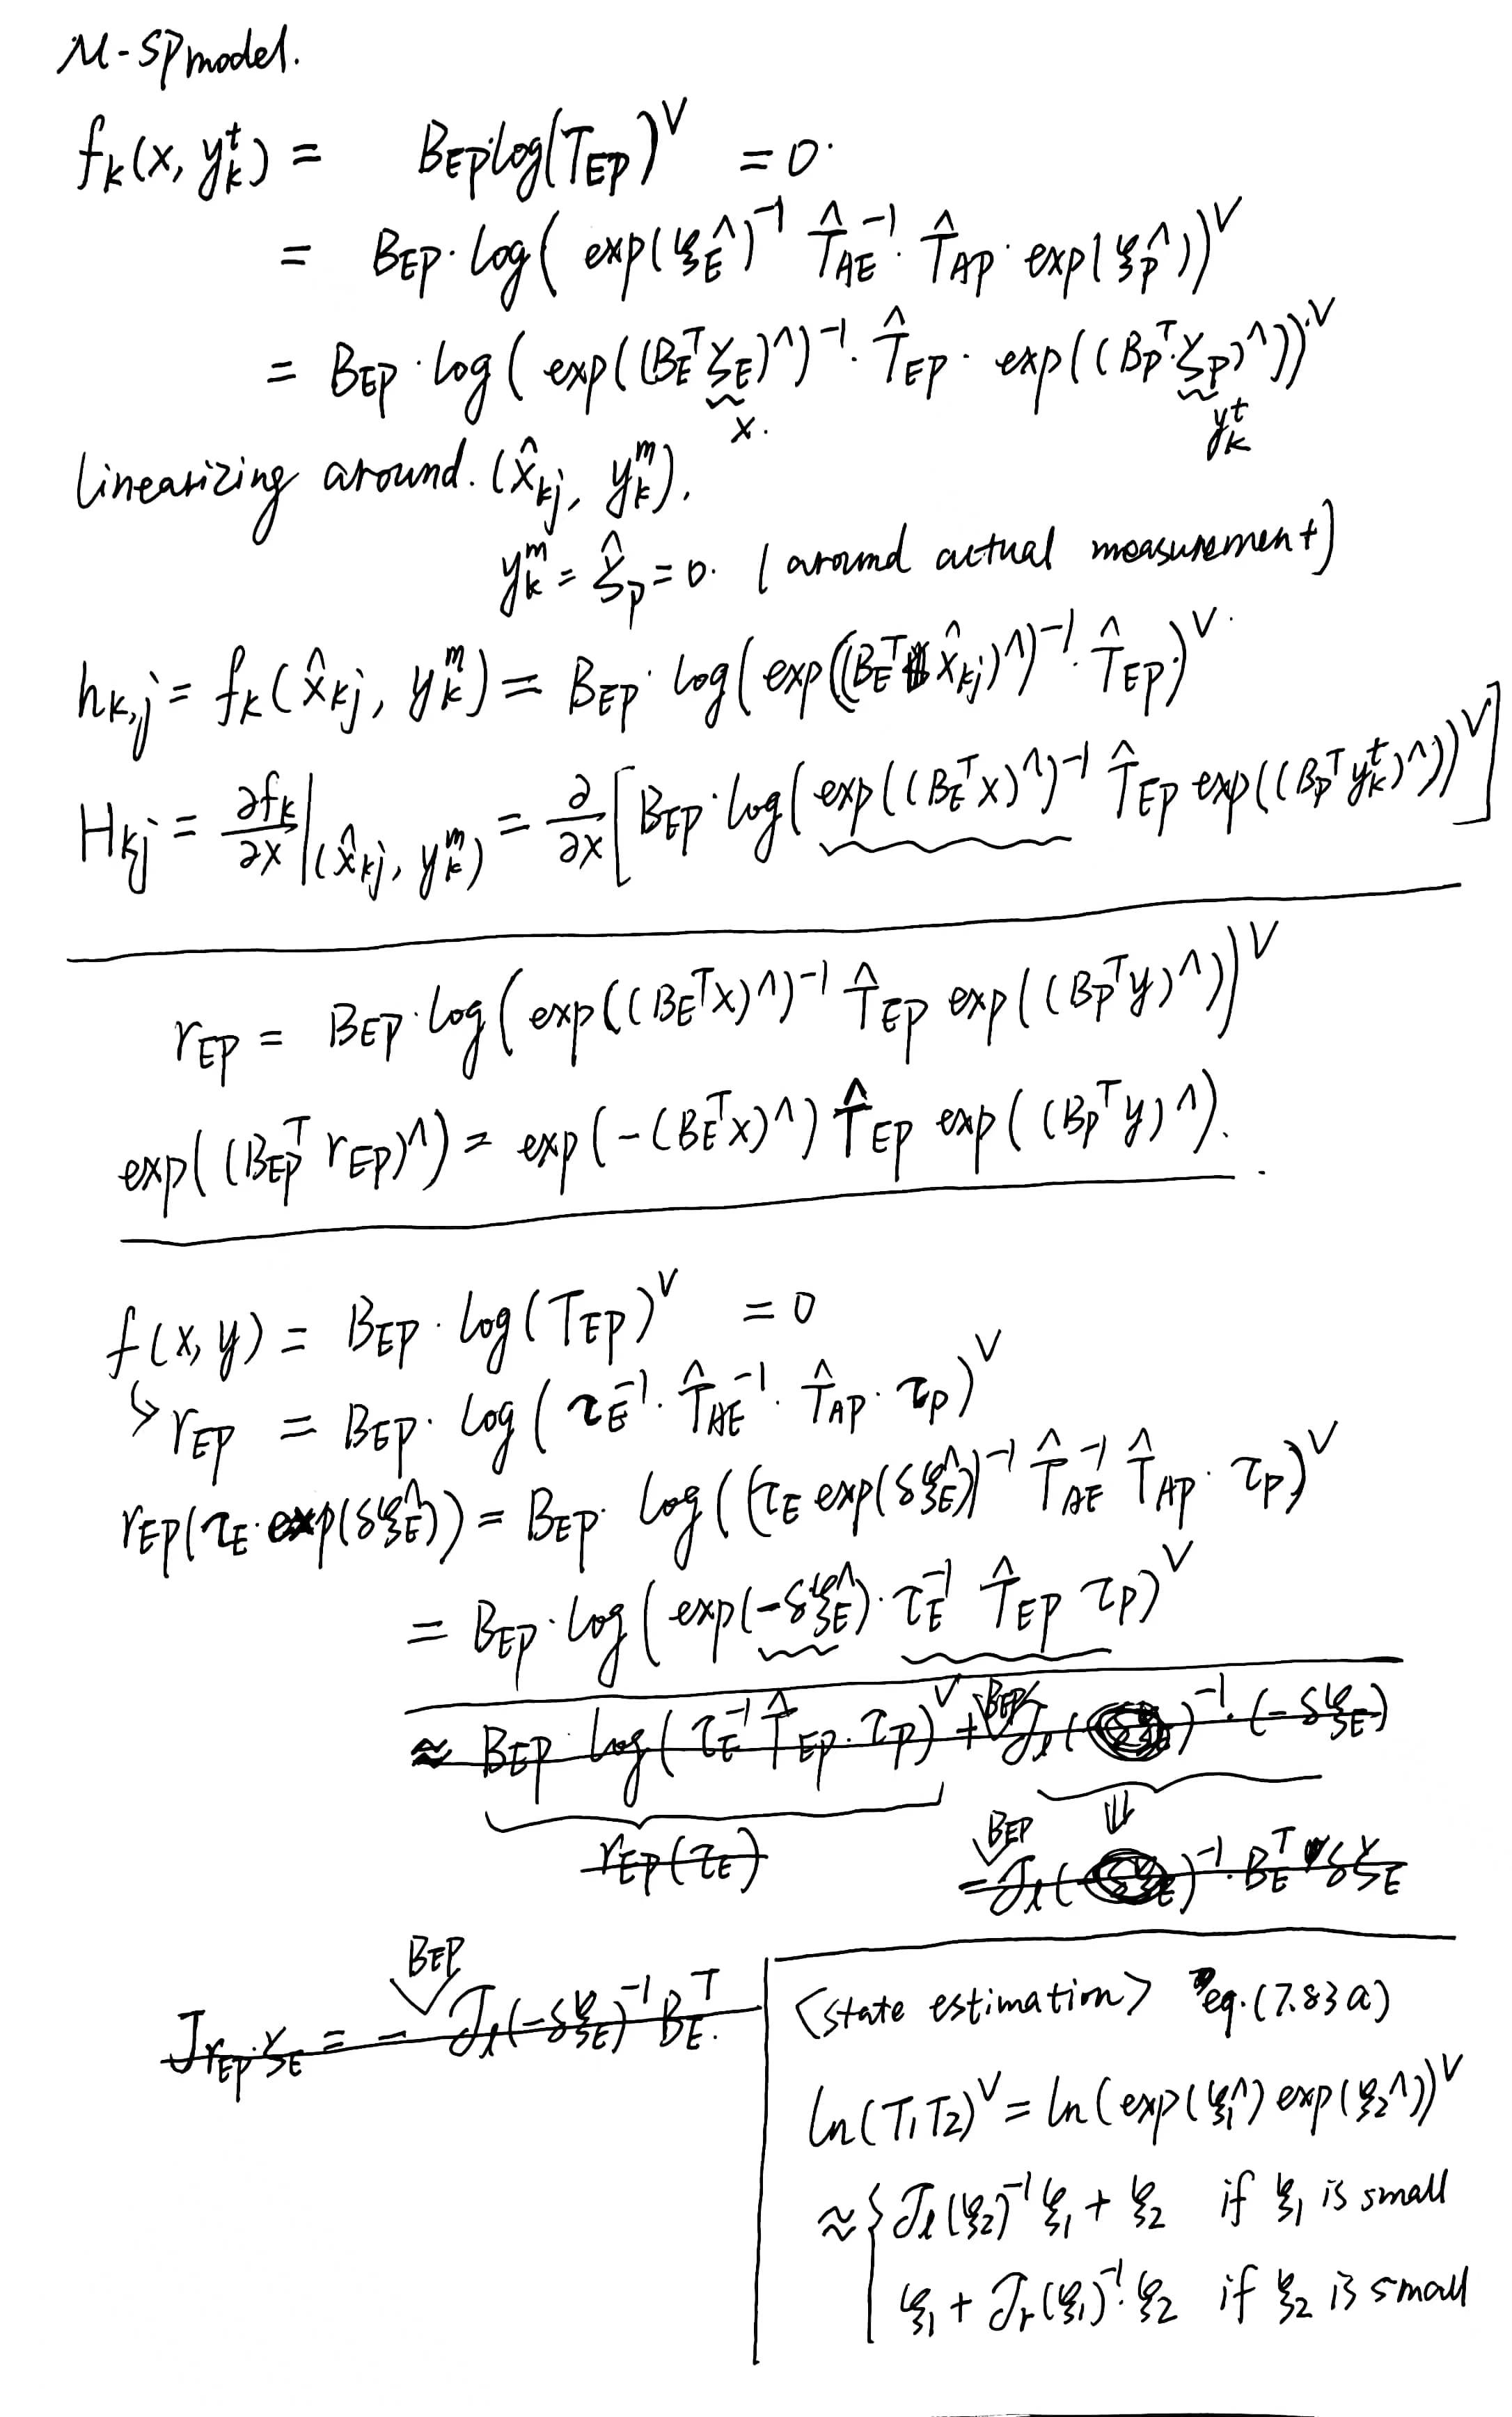 M-SPmodel.
f_k(x, y_k^t) = B_EP·log(T_EP)^∨ = 0.
= B_EP·log(exp(ξ_E^∧)^{-1} T̂_AE^{-1}·T̂_AP·exp(ξ_P^∧))^∨
= B_EP·log(exp((B_E^T ζ_E)^∧)^{-1}·T̂_EP·exp((B_P^T·ζ_P)^∧))^∨
x. y_k^t
linearizing around. (x̂_kj, y_k^m),
y_k^m = ζ̂_P = 0. (around actual measurement)
h_k,j = f_k(x̂_kj, y_k^m) = B_EP·log(exp((B_E^T x̂_kj)^∧)^{-1}·T̂_EP·)^∨
H_kj = ∂f_k/∂x |_(x̂_kj, y_k^m) = ∂/∂x [B_EP·log(exp((B_E^T x)^∧)^{-1} T̂_EP exp((B_P^T y_k^t)^∧))^∨]
r_EP = B_EP·log(exp((B_E^T x)^∧)^{-1} T̂_EP exp((B_P^T y)^∧))^∨
exp((B_EP^T r_EP)^∧) = exp(-(B_E^T x)^∧) T̂_EP exp((B_P^T y)^∧).
f(x, y) = B_EP·log(T_EP)^∨ = 0
↳ r_EP = B_EP·log(τ_E^{-1}·T̂_AE^{-1}·T̂_AP·τ_P)^∨
r_EP(τ_E·exp(δξ_E^∧)) = B_EP·log((τ_E exp(δξ_E^∧))^{-1} T̂_AE^{-1} T̂_AP·τ_P)^∨
= B_EP·log(exp(-δξ_E^∧)·τ_E^{-1} T̂_EP τ_P)^∨
≈ B_EP log(τ_E^{-1} T̂_EP·τ_P)^∨ + B_EP J_l( )^{-1}·(-δξ_E)
r_EP(τ_E)
⇓
= B_EP J_l( )^{-1}·B_E^T δζ_E
J_{r_EP·ζ_E} = - B_EP J_l(-δξ_E)^{-1} B_E^T.
<state estimation> eq.(7.83a)
ln(T_1 T_2)^∨ = ln(exp(ξ_1^∧) exp(ξ_2^∧))^∨
≈ { J_l(ξ_2)^{-1} ξ_1 + ξ_2 if ξ_1 is small
ξ_1 + J_r(ξ_1)^{-1}·ξ_2 if ξ_2 is small